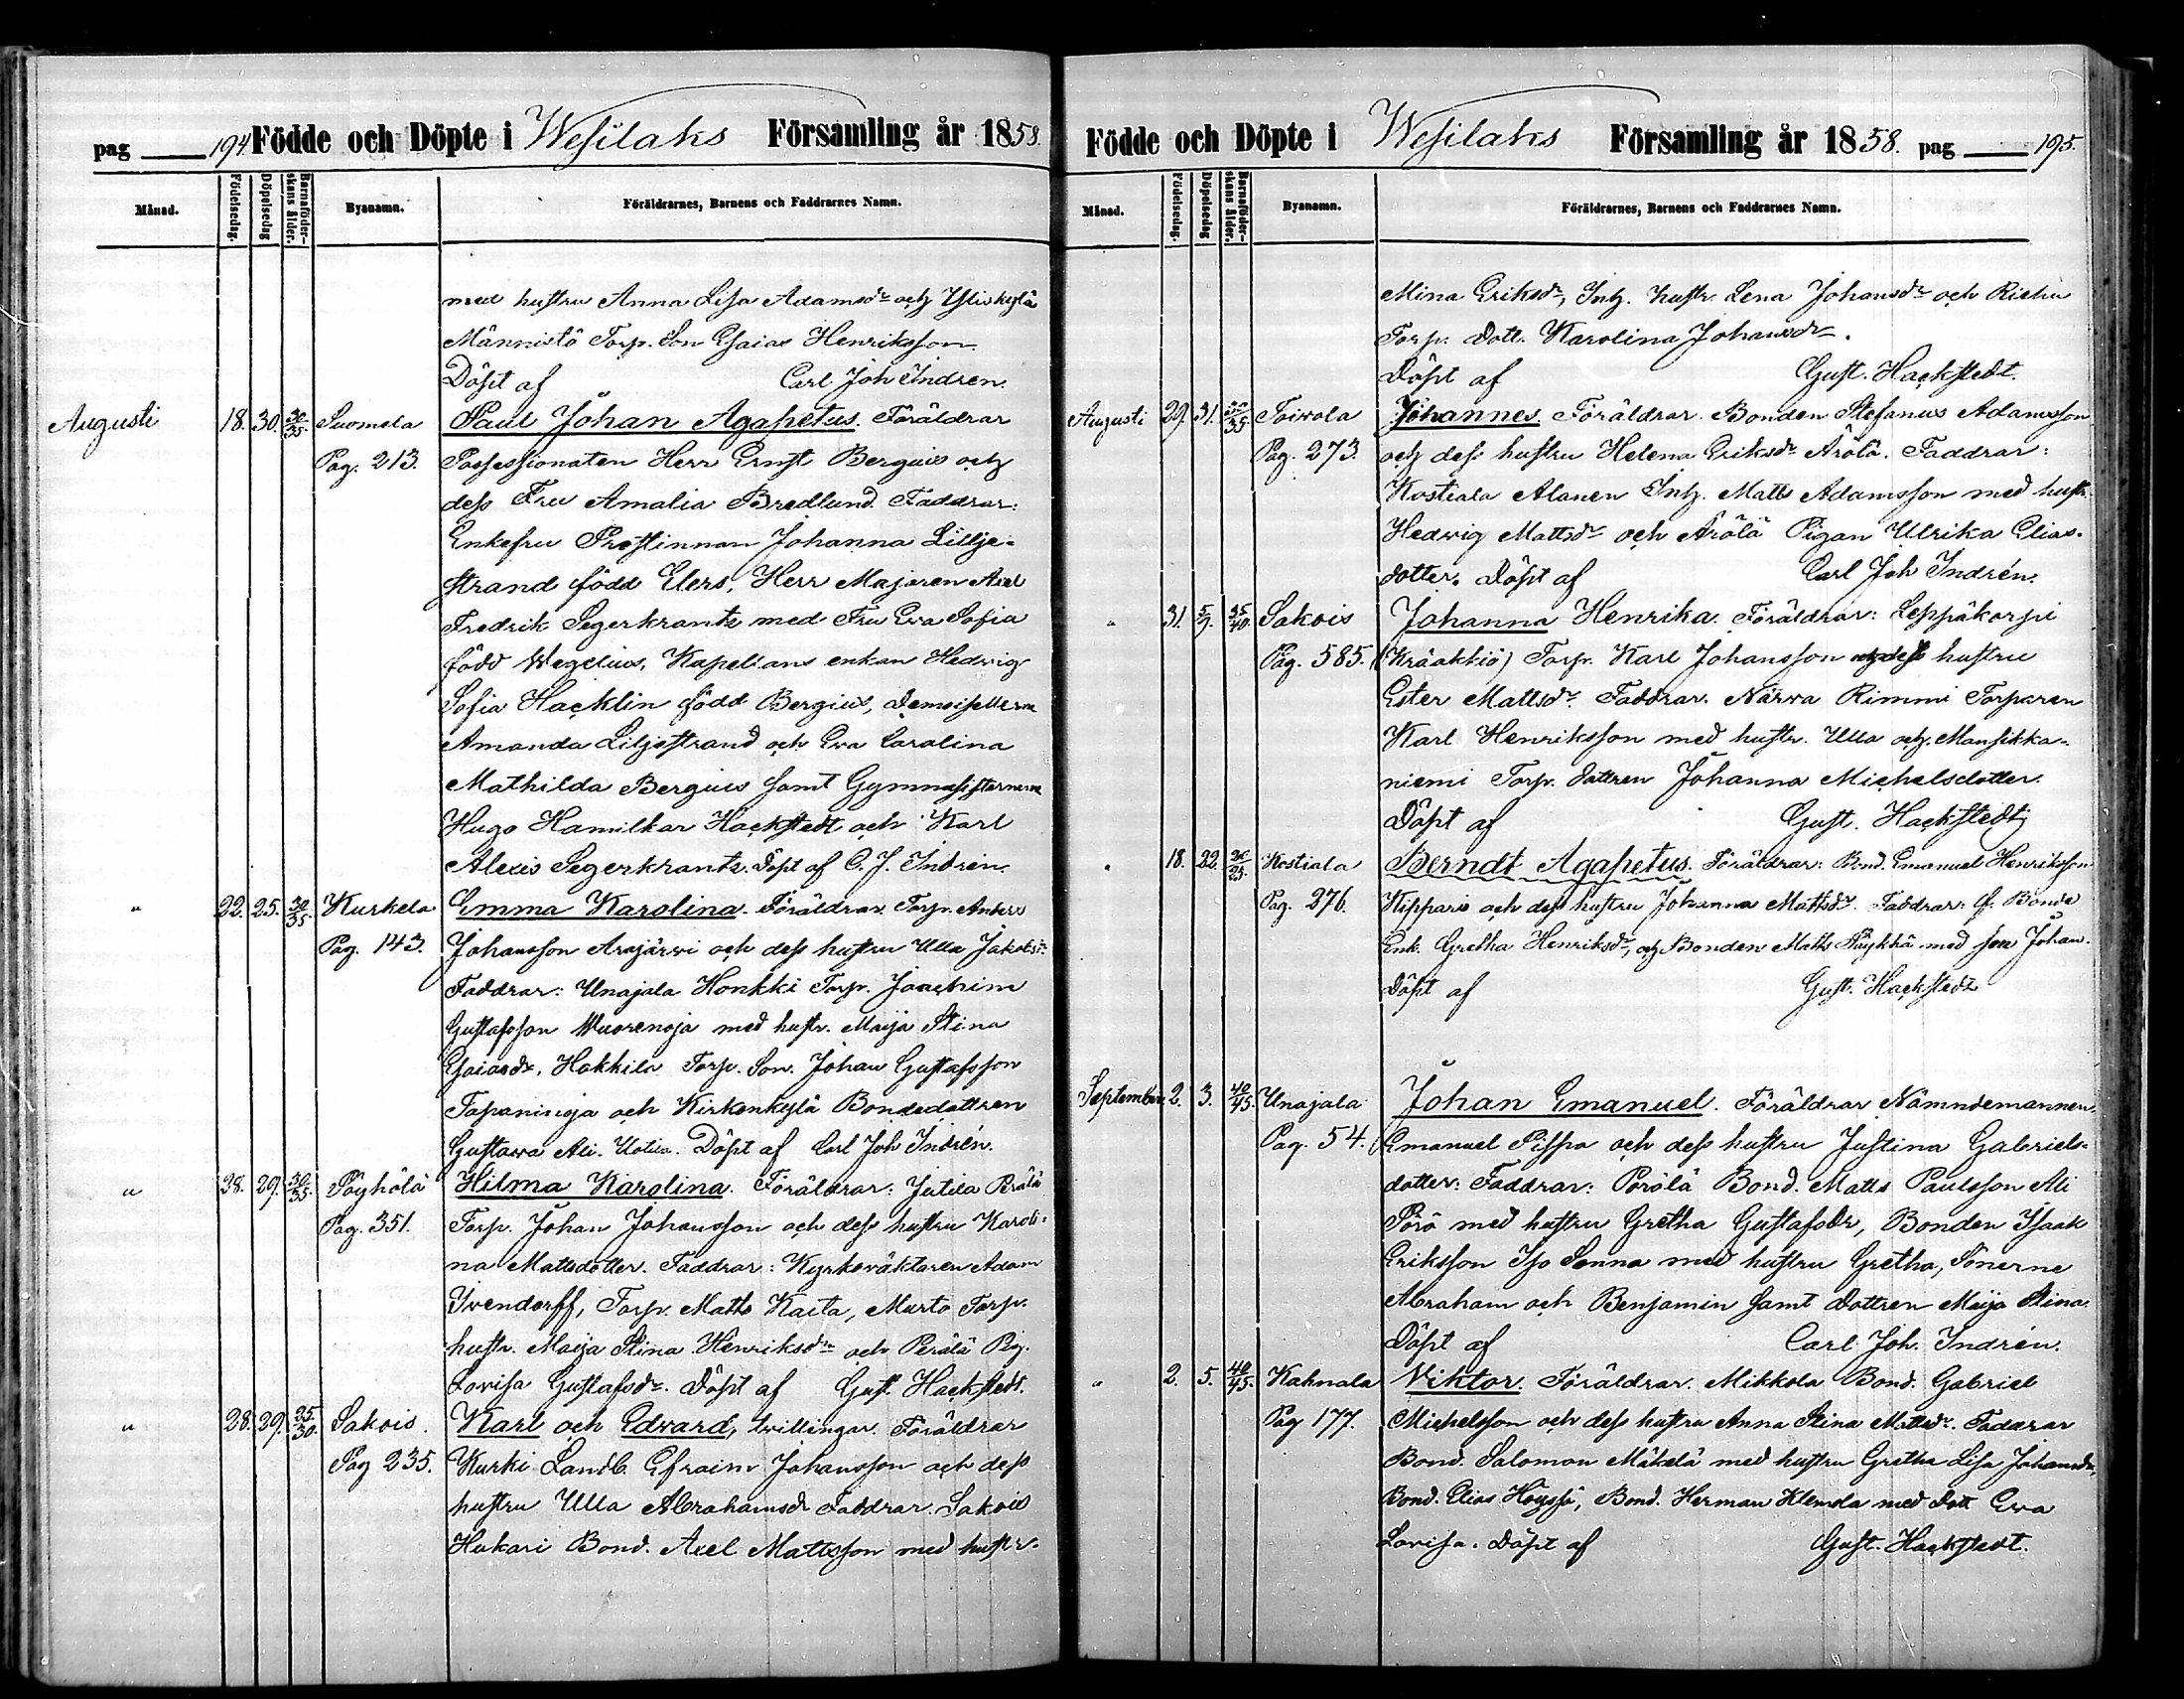 pag 194 Födde och Döpte i Wesilaks Församling år 1858.
Månad. Födelsedag. Döpelsedag Barnaföderskans ålder. Bysnamn. Föräldrarnes, Barnens och Faddrarnes Namn.
med hustru Anna Lisa Adamsdr och Yliskylä
Männistö Torp. Son Esaias Henriksson.
Döpt af Carl Joh Indren.
Augusti 18. 30. 30/35. Suomela Paul Johan Agapetus. Föräldrar
Pag. 213. Possessionaten Herr Ernst Bergius och
dess Fru Amalia Bredlund. Faddrar:
Enkefru Prostinnan Johanna Lillje-
strand född Elers, Herr Majoren Axel
Fredrik Segerkrantz med Fru Eva Sofia
född Wegelius, Kapellans enkan Hedvig
Sofia Hacklin född Bergius, Demoisellerna
Amanda Liljestrand och Eva Carolina
Mathilda Bergius samt Gymnasisterna
Hugo Hamilkar Hackstedt och Karl
Alexis Segerkrantz. Döpt af C. J. Indrén.
" 22. 25. 30/35 Kurkela Emma Karolina. Föräldrar Torp. Anders
Pag. 143. Johansson Arajärwi och dess hustru Ulla Jakobsdr
Faddrar: Unajala Honkki Torp. Joachim
Gustafsson Wuorenoja med hustr. Maija Stina
Esaiasdr, Hakkila Torp. Son. Johan Gustafsson
Tapaninoja och Kirkonkylä Bondedottren
Gustava Ali. Uotila. Döpt af Carl Joh Indrén.
" 28. 29. 30/35. Pöyhölä Hilma Karolina. Föräldrar: Jutila Perälä
Pag. 351. Torp. Johan Johansson och dess hustru Karoli-
na Mattsdotter. Faddrar: Kyrkoväktaren Adam
Ivendorff, Torp. Matts Kaita, Murto Torp.
hustr. Maija Stina Henriksdr och Perälä Pig.
Lovisa Gustafsdr. Döpt af Gust. Hackstedt.
" 28. 29. 25/30. Sakois. Karl och Edvard, tvillingar. Föräldrar
Pag 235. Kurki Landb. Efraim Johansson och dess
hustru Ulla Abrahamsdr Faddrar. Sakois
Hukari Bond. Axel Mattsson med hustr.
Födde och Döpte i Wesilaks Församling år 1858. pag 195.
Månad. Födelsedag. Döpelsedag Barnaföderskans ålder. Bysnamn. Föräldrarnes, Barnens och Faddrarnes Namn.
Mina Eriksdr, Inh. hustr. Lena Johansdr och
Torp. Dott. Karolina Johansdr.
Döpt af Gust. Hackstedt.
Augusti 29. 31. 30/35. Toivola Johannes. Föräldrar. Bonden Stefanus Adamsson
Pag. 273. och dess hustru Helena Eriksdr Arölä. Faddrar:
Kostiala Alanen Inh. Matts Adamsson med hustr.
Hedwig Mattsdr och Arölä Pigan Ulrika Elias-
dotter. Döpt af Carl Joh Indrén.
" 31. 5/9. 35/40. Sakois Johanna Henrika. Föräldrar: Leppäkorpi
Pag. 585. (Krääkkiö) Torp. Karl Johansson och dess hustru
Ester Mattsdr. Faddrar. Närwa Rimmi Torparen
Karl Henriksson med hustr. Ulla och Mansikka-
niemi Torp. dottren Johanna Michelsdotter.
Döpt af Gust. Hackstedt
" 18. 22. 20/25. Kostiala Berndt Agapetus. Föräldrar: Bond. Emanuel Henriksson
Pag. 276. Kippari och dess hustru Johanna Mattsdr. Faddrar: f. Bonde
Enk. Gretha Henriksdr, och Bonden Matts med son Johan.
Döpt af Gust. Hackstedt
September 2. 3. 40/45. Unajala Johan Emanuel. Föräldrar Nämndemannen
Pag. 54. Emanuel Pispa och dess hustru Justina Gabriels-
dotter: Faddrar: Pörölä Bond. Matts Paulsson Ali
Pörö med hustru Gretha Gustafsdr, Bonden Isaak
Eriksson Iso Sonna med hustru Gretha, Sönerne
Abraham och Benjamin samt dottren Maija Stina.
Döpt af Carl Joh. Indrén.
" 2. 5. 40/45. Kahnala Viktor. Föräldrar. Mikkola Bond. Gabriel
Pag 177. Michelsson och dess hustru Anna Stina Mattsdr. Faddrar
Bond. Salomon Mäkelä med hustru Gretha Lisa Johansdr,
Bond. Elias Höyssä, Bond. Herman Klemola med dott Eva
Lovisa. Döpt af Gust. Hackstedt.